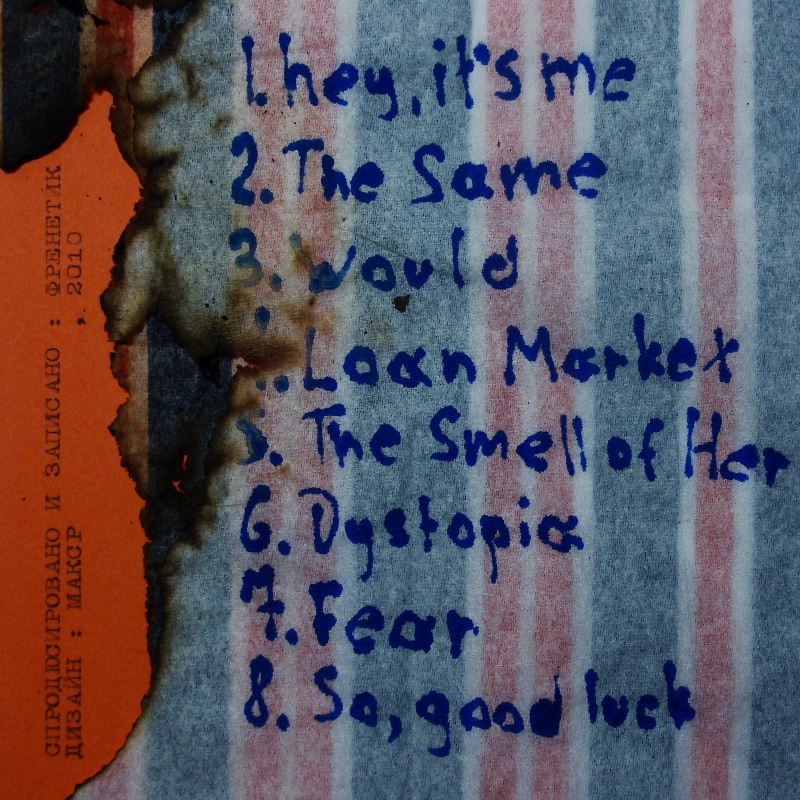 1. hey, it's me
2. The Same
3. Would
Loan Market
5. The Smell of Her
6. Dystopia
7. Fear
8. So, good luck
СПРОДЮСИРОВАНО И ЗАПИСАНО : ФРЕНЕТИК , 2010
ДИЗАЙН : МАКСР